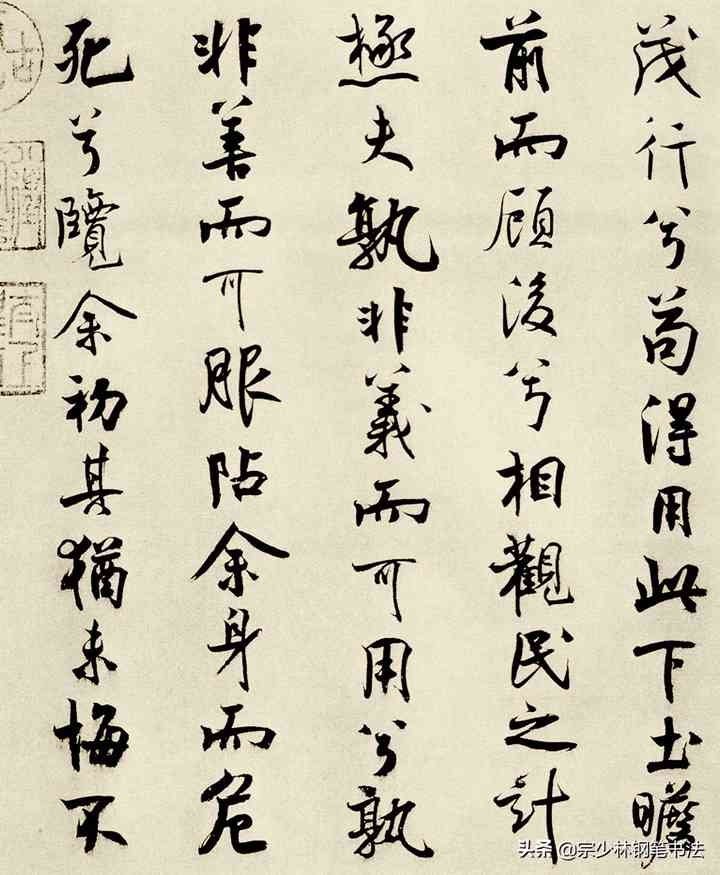 茂行兮苟得用此下土瞻
前而顧後兮相觀民之計
極夫孰非義而可用兮孰
非善而可服阽余身而危
死兮覽余初其猶未悔不
头条 @宗少林钢笔书法